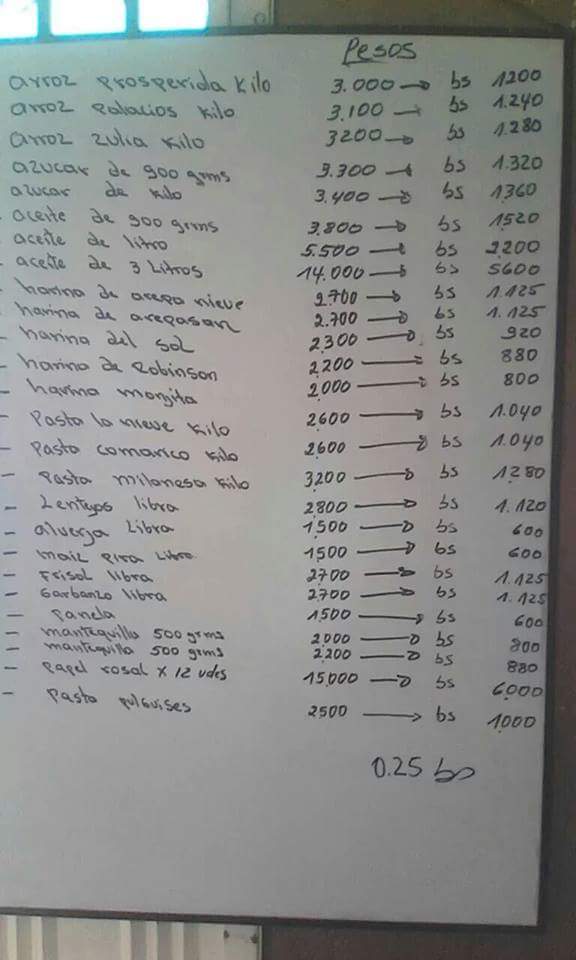 Pesos
arroz prosperida kilo 3.000 → bs 1200
arroz palacios kilo 3.100 → bs 1.240
arroz zulia kilo 3200 → bs 1.280
azucar de 900 grms 3.300 → bs 1.320
azucar de kilo 3.400 → bs 1360
- aceite de 900 grms 3.800 → bs 1520
- aceite de litro 5.500 → bs 2,200
- aceite de 3 Litros 14.000 → bs 5600
- harina de arepa nieve 2.700 → bs 1.125
- harina de arepasan 2.700 → bs 1.125
- harina del sol 2300 → bs 920
- harina de Robinson 2,200 → bs 880
- harina monjita 2,000 → bs 800
- Pasta la nieve kilo 2600 → bs 1.040
- Pasta comarico kilo 2600 → bs 1.040
- Pasta milanesa kilo 3,200 → bs 1280
- Lentejas libra 2800 → bs 1.120
- alverja Libra 1,500 → bs 600
- maiz pira Libra 1500 → bs 600
- Frisol libra 2700 → bs 1.125
- Garbanzo libra 2700 → bs 1.125
- Panela 1500 → bs 600
- mantequilla 500 grms 2,000 → bs 800
- mantequilla 500 grms 2,200 → bs 880
- Papel rosal x 12 udes 15,000 → bs 6,000
- Pasta 2500 → bs 1,000
0.25 bs